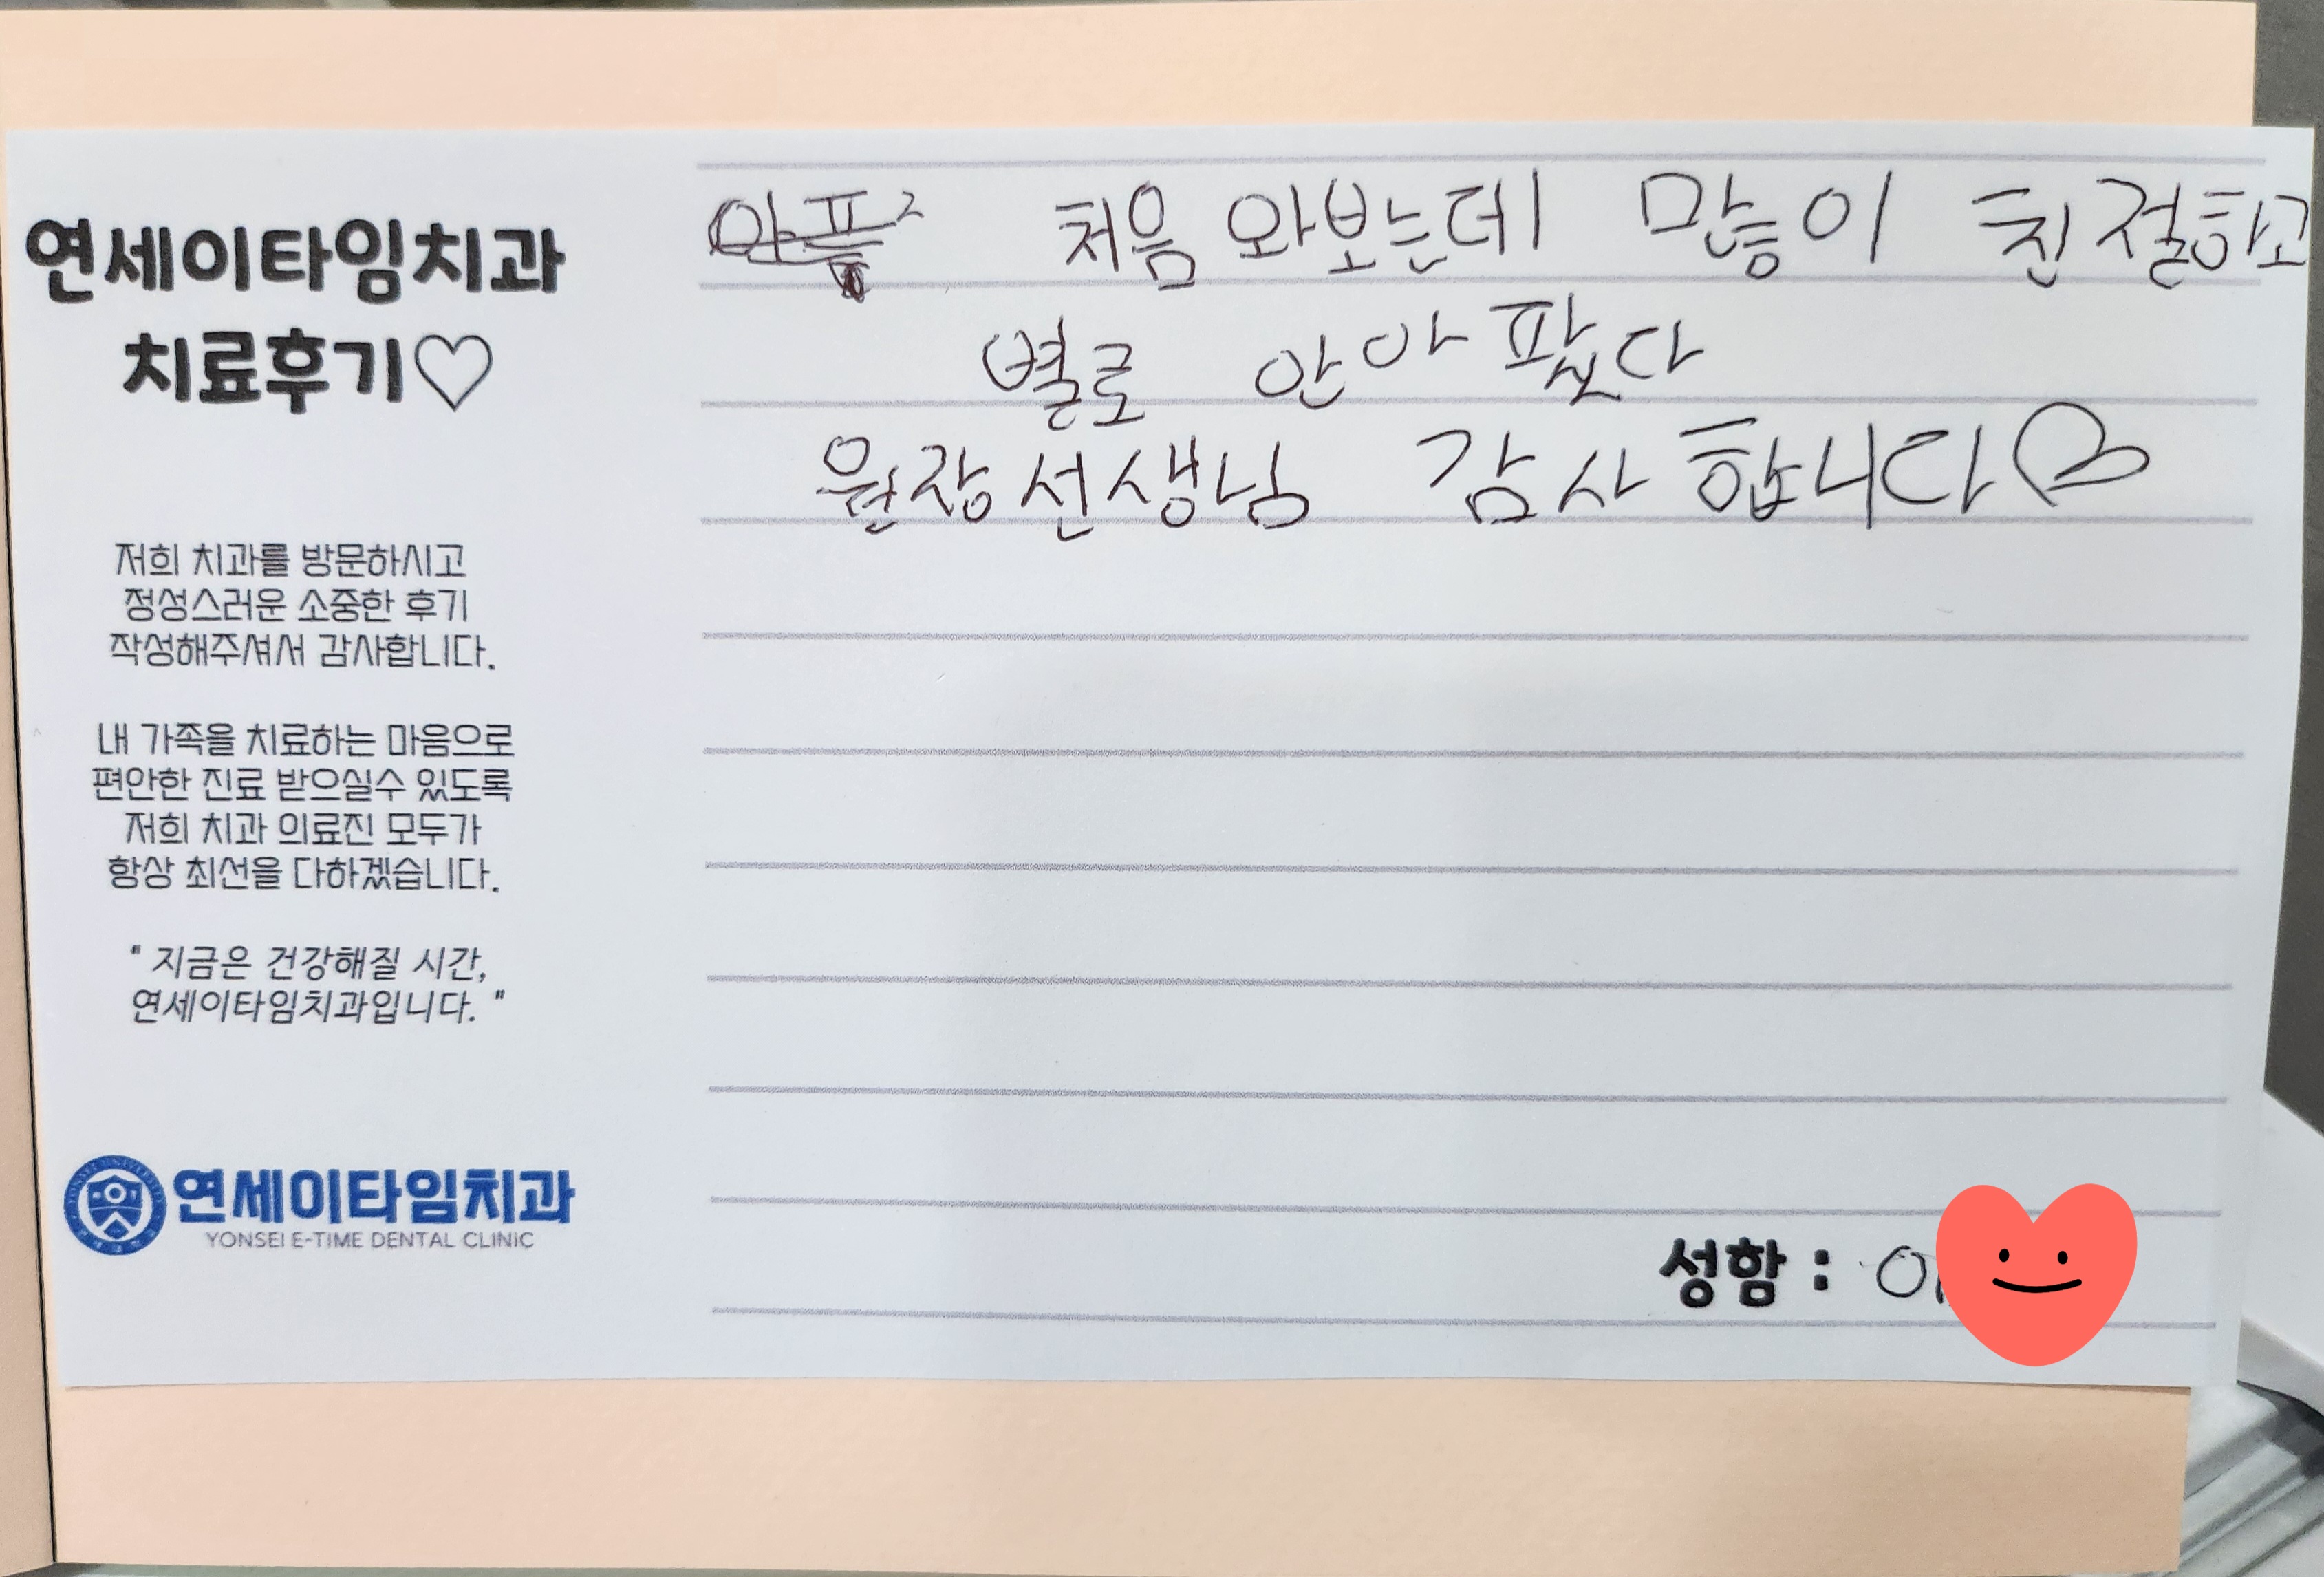 연세이타임치과
치료후기♡
저희 치과를 방문하시고
정성스러운 소중한 후기
작성해주셔서 감사합니다.
내 가족을 치료하는 마음으로
편안한 진료 받으실수 있도록
저희 치과 의료진 모두가
항상 최선을 다하겠습니다.
" 지금은 건강해질 시간,
연세이타임치과입니다. "
연세이타임치과
YONSEI E-TIME DENTAL CLINIC
처음 와봤는데 많이 친절하고
별로 안아팠다
원장선생님 감사합니다♡
성함 :